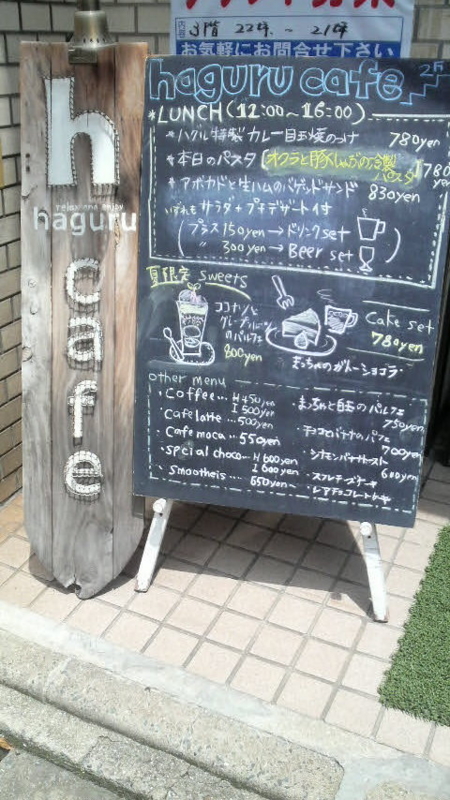 内容 3階 22坪. ~ 21坪
お気軽にお問合せ下さい
h
relax and enjoy
haguru
cafe
haguru cafe 2F
*LUNCH (12:00~16:00)
*ハグル特製カレー目玉焼のっけ 780yen
*本日のパスタ [オクラと豚しゃぶの パスタ] 780yen
*アボカドと生ハムのバゲットサンド 830yen
いずれもサラダ+プチデザート付
(プラス150yen→ドリンクset
〃 300yen→Beer set)
夏限定 sweets
ココナツと
グレープフルーツ
のパルフェ
800yen
Cake set
780yen
まっちゃのガトーショコラ
other menu
・Coffee... H 450yen
I 500yen
・Cafe latte... 500yen
Cafe moca... 550yen
・special choco... H 600yen
I 600yen
・smootheis... 650yen
・まっちゃと白玉のパルフェ
750yen
・チョコバナナのパフェ
700yen
・シナモンバナナトースト
600yen
・スフレチーズケーキ
・レアチョコレートケーキ